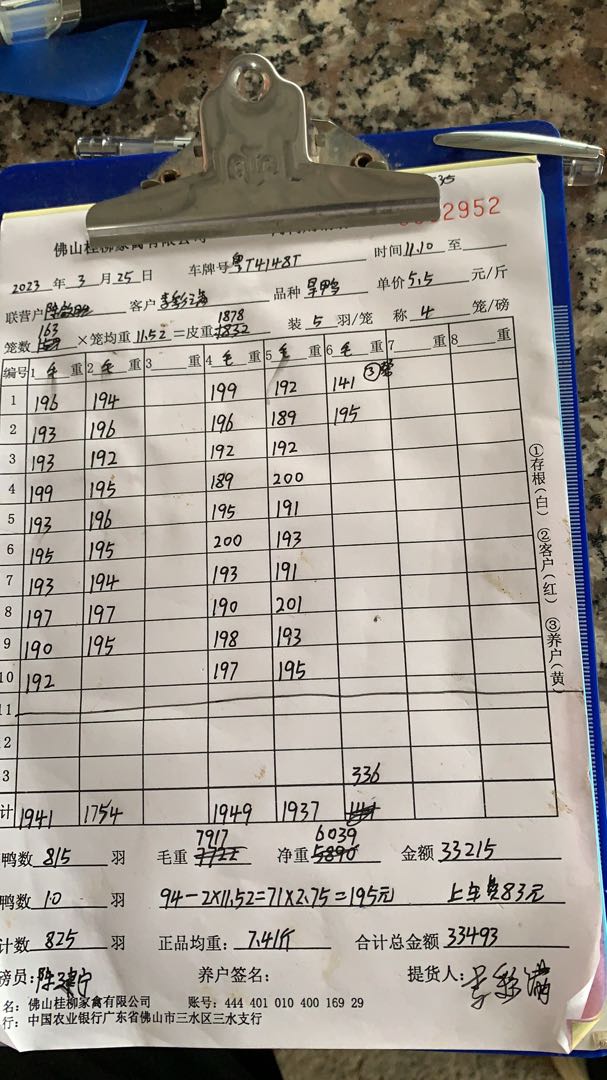 2952
佛山桂柳家禽有限公司
2023 年 3 月 25 日 车牌号 粤T4148T 时间 11.10 至
联营户 客户 李彩满 品种 旱鸭 单价 5.5 元/斤
163 1878
笼数 159 ×笼均重 11.52 =皮重 1832 装 5 羽/笼 称 4 笼/磅
编号 1 毛 重 2 毛 重 3 重 4 毛 重 5 毛 重 6 毛 重 7 重 8 重
1 196 194 199 192 141 ③笼
2 193 196 196 189 195
3 193 192 192 192
4 199 195 189 200
5 193 196 195 191
6 195 195 200 193
7 193 194 193 191
8 197 197 190 201
9 190 195 198 193
10 192 197 195
11
2
3 336
计 1941 1754 1949 1937
7917 6039
鸭数 815 羽 毛重 7722 净重 5890 金额 33215
鸭数 10 羽 94-2×11.52=71×2.75=195元 上车费83元
计数 825 羽 正品均重: 7.41斤 合计总金额 33493
磅员: 陈建宁 养户签名: 提货人: 李彩满
名: 佛山桂柳家禽有限公司 账号: 444 401 010 400 169 29
行: 中国农业银行广东省佛山市三水区三水支行
①存根(白) ②客户(红) ③养户(黄)